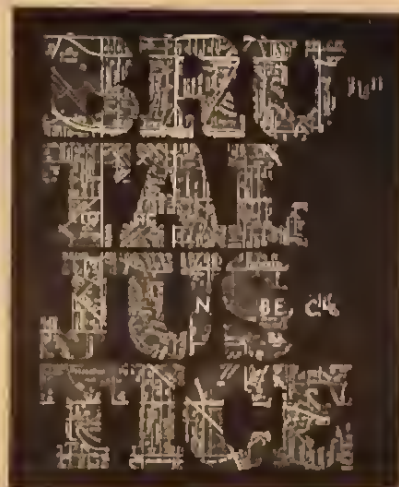 BRU
TAL
JUS
TICE